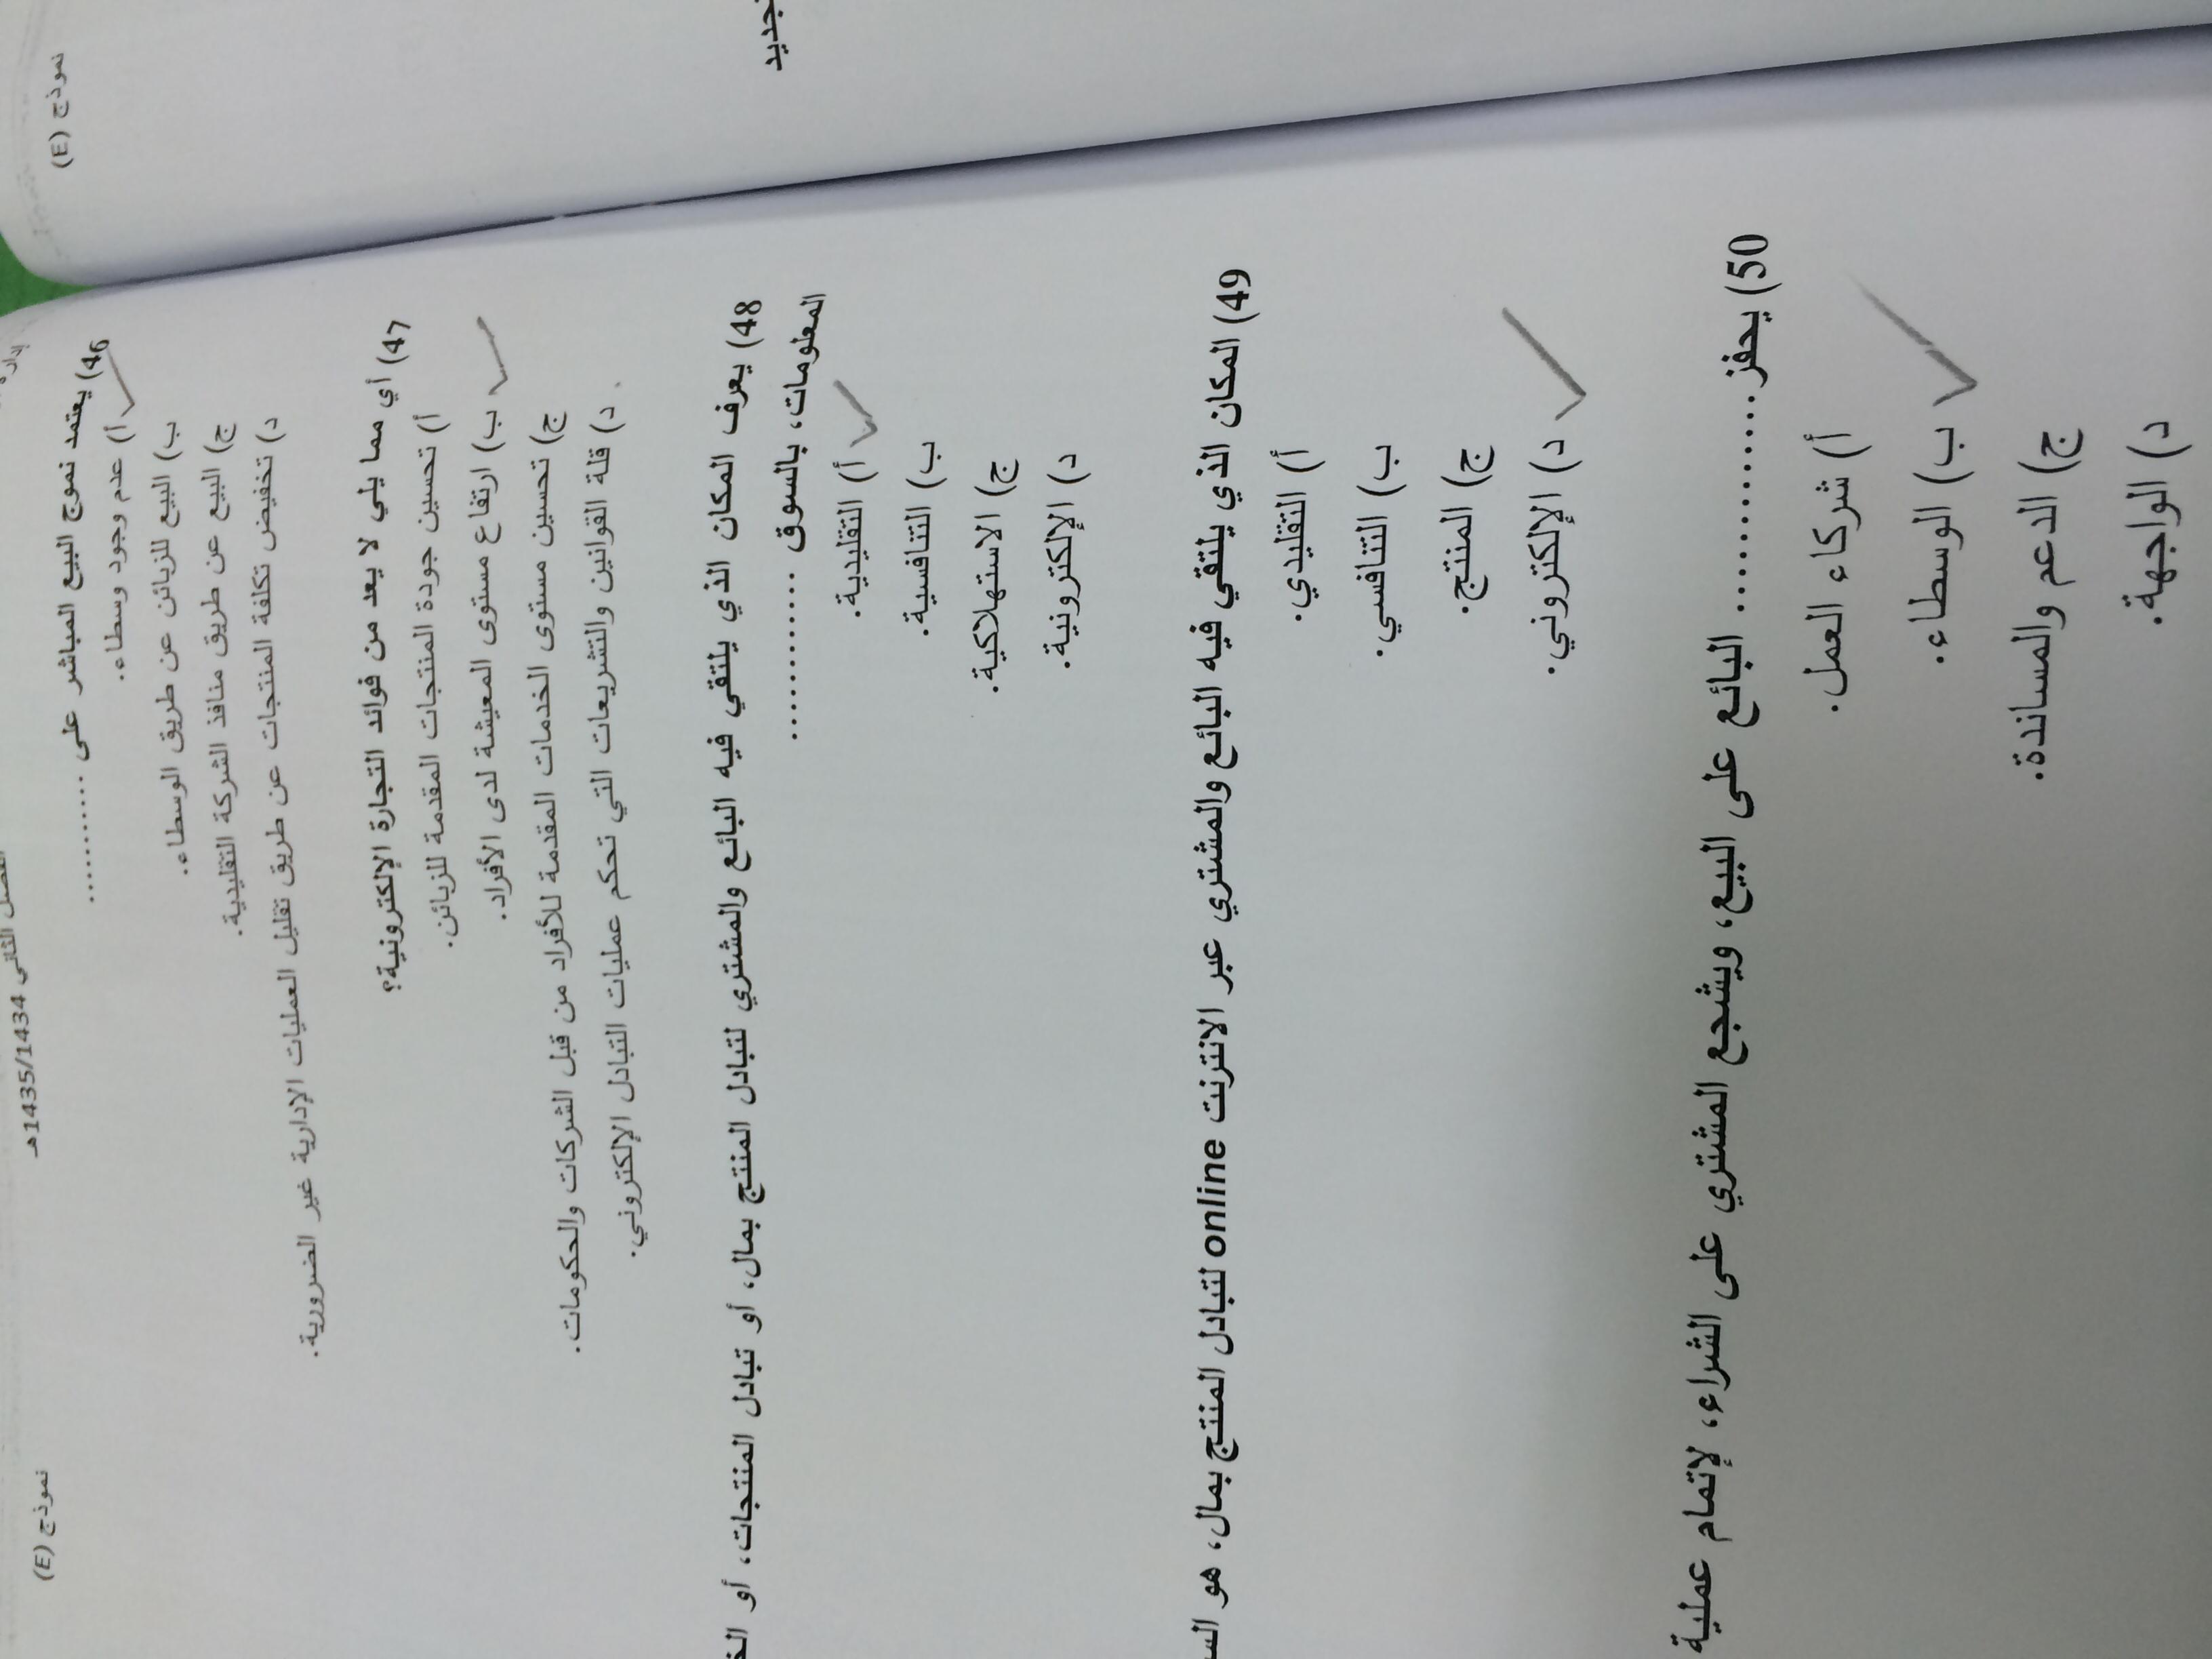 نموذج (E)
جديد
الفصل الثاني 1435/1434هـ
نموذج (E)
46) يعتمد نموج البيع المباشر على ............
أ) عدم وجود وسطاء.
ب) البيع للزبائن عن طريق الوسطاء.
ج) البيع عن طريق منافذ الشركة التقليدية.
د) تخفيض تكلفة المنتجات عن طريق تقليل العمليات الإدارية غير الضرورية.
47) أي مما يلي لا يعد من فوائد التجارة الإلكترونية؟
أ) تحسين جودة المنتجات المقدمة للزبائن.
ب) ارتفاع مستوى المعيشة لدى الأفراد.
ج) تحسين مستوى الخدمات المقدمة للأفراد من قبل الشركات والحكومات.
د) قلة القوانين والتشريعات التي تحكم عمليات التبادل الإلكتروني.
48) يعرف المكان الذي يلتقي فيه البائع والمشتري لتبادل المنتج بمال، أو تبادل المنتجات، أو
المعلومات، بالسوق ............
أ) التقليدية.
ب) التنافسية.
ج) الاستهلاكية.
د) الإلكترونية.
49) المكان الذي يلتقي فيه البائع والمشتري عبر الانترنت online لتبادل المنتج بمال، هو
أ) التقليدي.
ب) التنافسي.
ج) المنتج.
د) الإلكتروني.
50) يحفز................ البائع على البيع، ويشجع المشتري على الشراء، لإتمام عملية
أ) شركاء العمل.
ب) الوسطاء.
ج) الدعم والمساندة.
د) الواجهة.